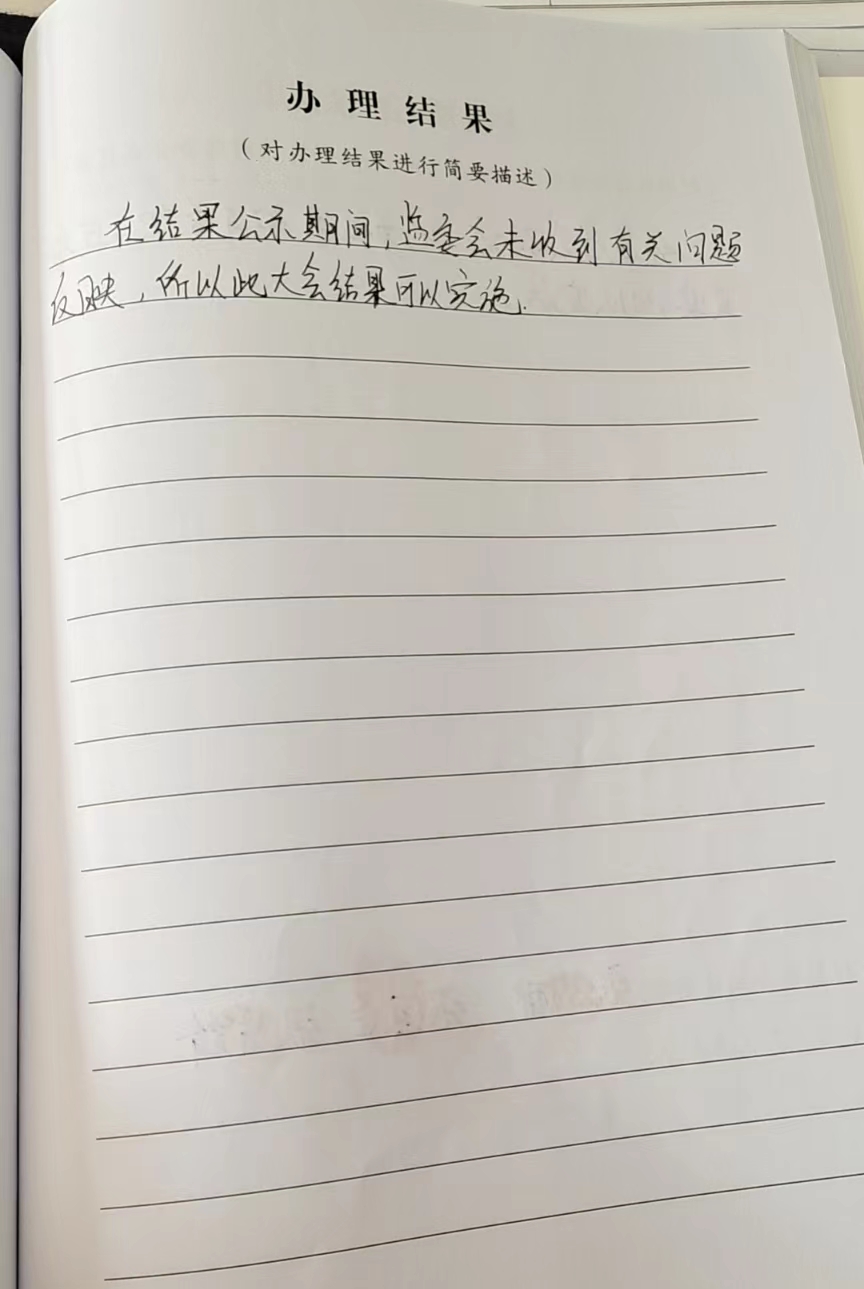 办理结果
（对办理结果进行简要描述）
在结果公示期间，监委会未收到有关问题
反映，所以此大会结果可以实施.